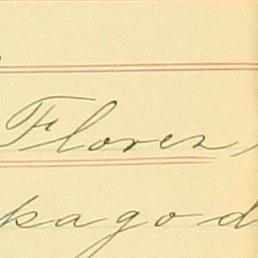 Flores,
pagod